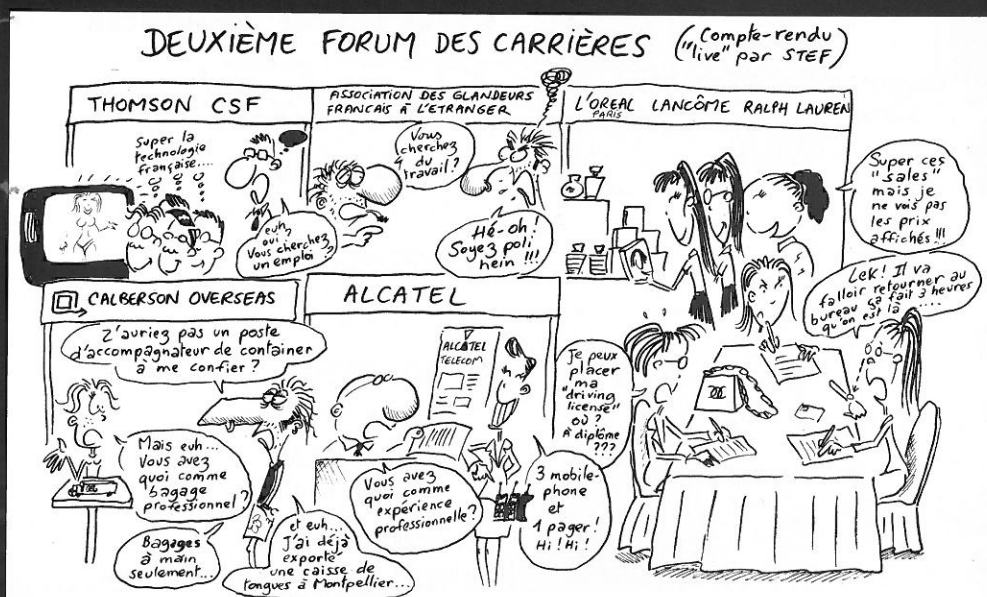 DEUXIÈME FORUM DES CARRIÈRES
(Compte-rendu
"live" par STEF)
THOMSON CSF
Super la
technologie
française....
euh
oui?
Vous cherchez
un emploi?
ASSOCIATION DES GLANDEURS
FRANCAIS À L'ETRANGER
Vous
cherchez
du
travail?
Hé-oh!
Soyez poli
hein !!!
L'OREAL LANCÔME RALPH LAUREN
PARIS
Super ces
"sales"
mais je
ne vois pas
les prix
affichés!!!
Lek! Il va
falloir retourner au
bureau ça fait 3 heures
qu'on est là .....
CALBERSON OVERSEAS
Z'auriez pas un poste
d'accompagnateur de container
à me confier?
Mais euh...
Vous avez
quoi comme
bagage
professionnel?
Bagages
à main
seulement...
et euh...
J'ai déjà
exporté
une caisse de
tongues à Montpellier...
ALCATEL
ALCATEL
TELECOM
Vous avez
quoi comme
expérience
professionnelle?
3 mobile-
phone
et
1 pager!
Hi! Hi!
Je peux
placer
ma
"driving
license"
où?
À diplôme
???